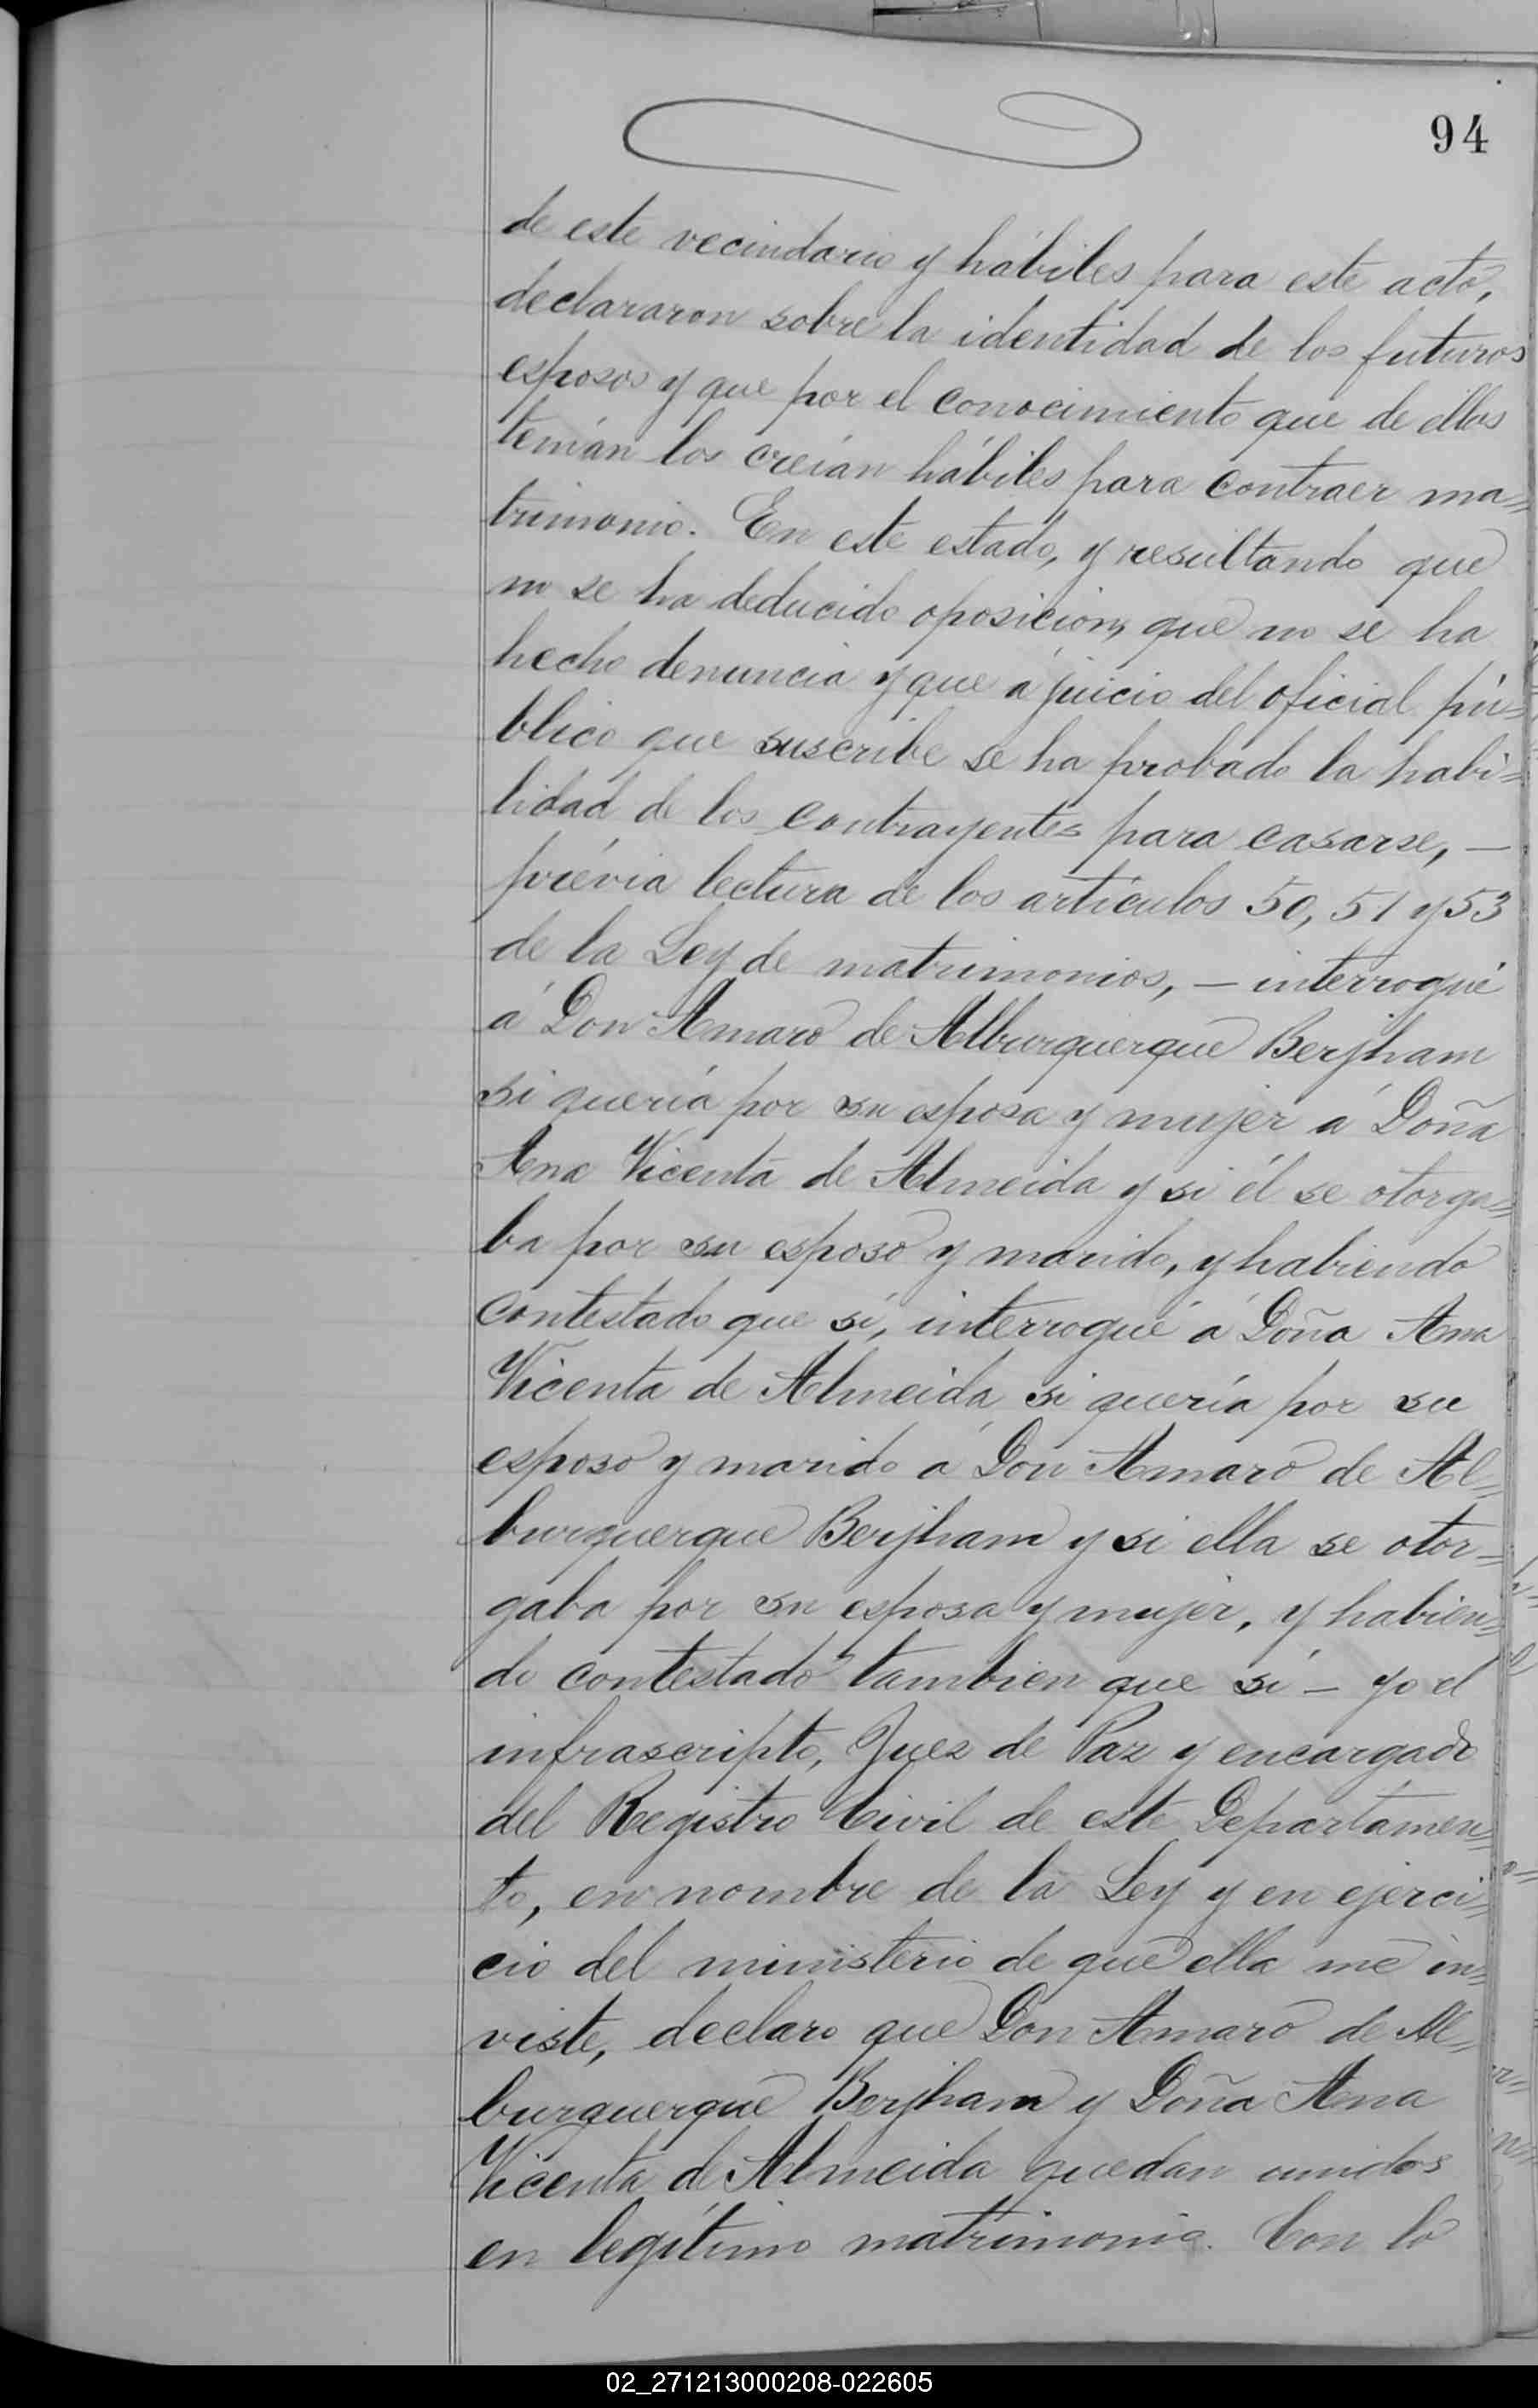 94
de este vecindario y hábiles para este acto,
declararon sobre la identidad de los futuros
esposos y que por el conocimiento que de ellos
tenían los creían hábiles para contraer ma=
trimonio. En este estado, y resultando que
no se ha deducido oposicion, que no se ha
hecho denuncia y que á juicio del oficial pú=
blico que suscribe se ha probado la habi=
lidad de los contrayentes para casarse, —
prévia lectura de los artículos 50, 51 y 53
de la Ley de matrimonios, — interrogué
á Don Amaro de Alburquerque Berjham
si quería por su esposa y mujer á Doña
Ana Vicenta de Almeida y si él se otorga=
ba por su esposo y marido, y habiendo
contestado que sí, interrogué á Doña Ana
Vicenta de Almeida si quería por su
esposo y marido á Don Amaro de Al=
burquerque Berjham y si ella se otor=
gaba por su esposa y mujer, y habien=
do contestado tambien que sí — yo el
infrascripto, Juez de Paz y encargado
del Registro Civil de este Departamen=
to, en nombre de la Ley y en ejerci=
cio del ministerio de que ella me in=
viste, declaro que Don Amaro de Al=
burquerque Berjham y Doña Ana
Vicenta de Almeida quedan unidos
en legítimo matrimonio. Con lo
02_271213000208-022605